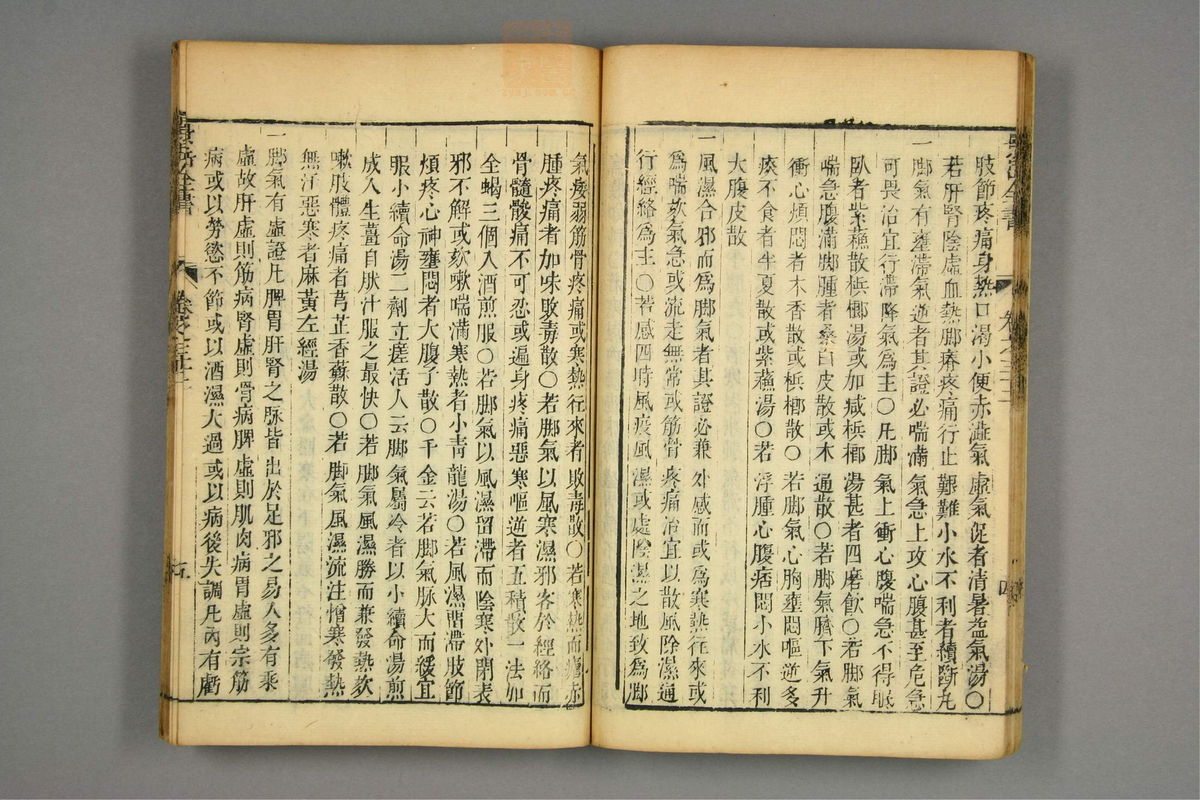 肢節疼痛身熱口渴小便赤澁氣虛氣促者清暑益氣湯〇
若肝腎陰虛血熱脚瘠疼痛行止艱難小水不利者續斷丸
一脚氣有壅滯氣逆者其證必喘滿氣急上攻心腹甚至危急
可畏治宜行滯降氣爲主〇凡脚氣上衝心腹喘急不得眠
臥者紫蘓散檳榔湯或加减檳榔湯甚者四磨飲〇若脚氣
喘急腹滿脚腫者桑白皮散或木通散〇若脚氣臍下氣升
衝心煩悶者木香散或檳榔散〇若脚氣心胸壅悶嘔逆多
痰不食者半夏散或紫蘓湯〇若浮腫心腹痞悶小水不利
大腹皮散
一風濕合邪而爲脚氣者其證必兼外感而或爲寒熱往來或
爲喘欬氣急或流走無常或筋骨疼痛治宜以散風除濕通
行經絡爲主〇若感四時風疫風濕或處陰濕之地致爲脚
氣痿弱筋骨疼痛或寒熱往來者敗毒散〇若寒熱而瘇亦
腫疼痛者加味敗毒散〇若脚氣以風寒濕邪客於經絡而
骨髓酸痛不可忍或遍身疼痛惡寒嘔逆者五積散一法加
全蝎三個入酒煎服〇若脚氣以風濕留滯而陰寒外閉表
邪不解或欬嗽喘滿寒熱者小青龍湯〇若風濕畱滯肢節
煩疼心神壅悶者大腹子散〇千金云若脚氣脉大而緩宜
服小續命湯二劑立瘥活人云脚氣屬冷者以小續命湯煎
成入生薑自肰汁服之最快〇若脚氣風濕勝而兼發熱欬
嗽肢體疼痛者芎芷香蘇散〇若脚氣風濕流注憎寒發熱
無汗惡寒者麻黃左經湯
一脚氣有虛證凡脾胃肝腎之脉皆出於足邪之易人多有乘
虛故肝虛則筋病腎虛則骨病脾虛則肌肉病胃虛則宗筋
病或以勞慾不節或以酒濕大過或以病後失調凡內有虧